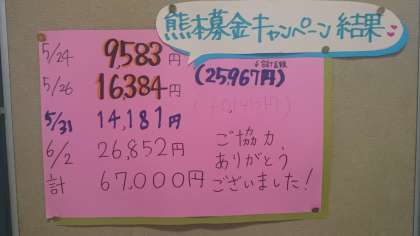 熊本募金キャンペーン 結果
5/24 9,583円
5/26 16,384円
合計金額
(25,967円)
5/31 14,181円
6/2 26,852円
計 67,000円
ご協力
ありがとう
ございました!